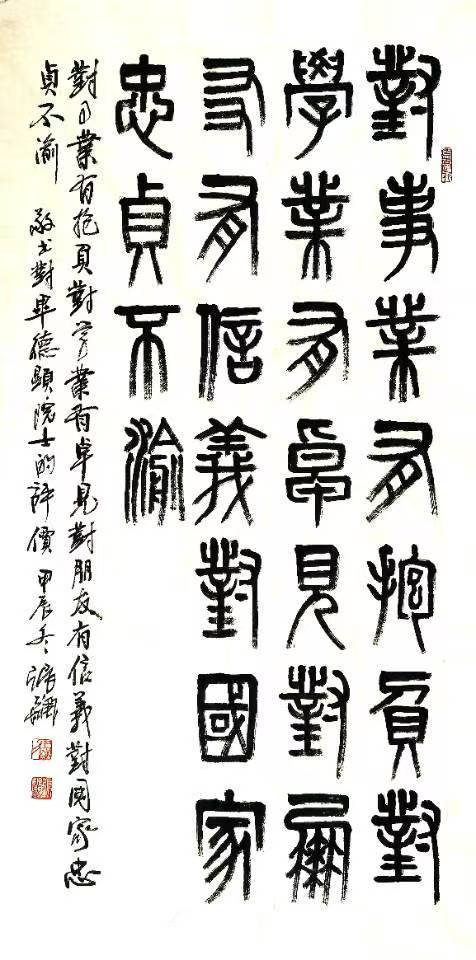 對事業有抱負對
學業有卓見對朋
友有信義對國家
忠貞不渝
對事業有抱負對學業有卓見對朋友有信義對國家忠
貞不渝 敬書對畢德顯院士的評價 甲辰冬 張